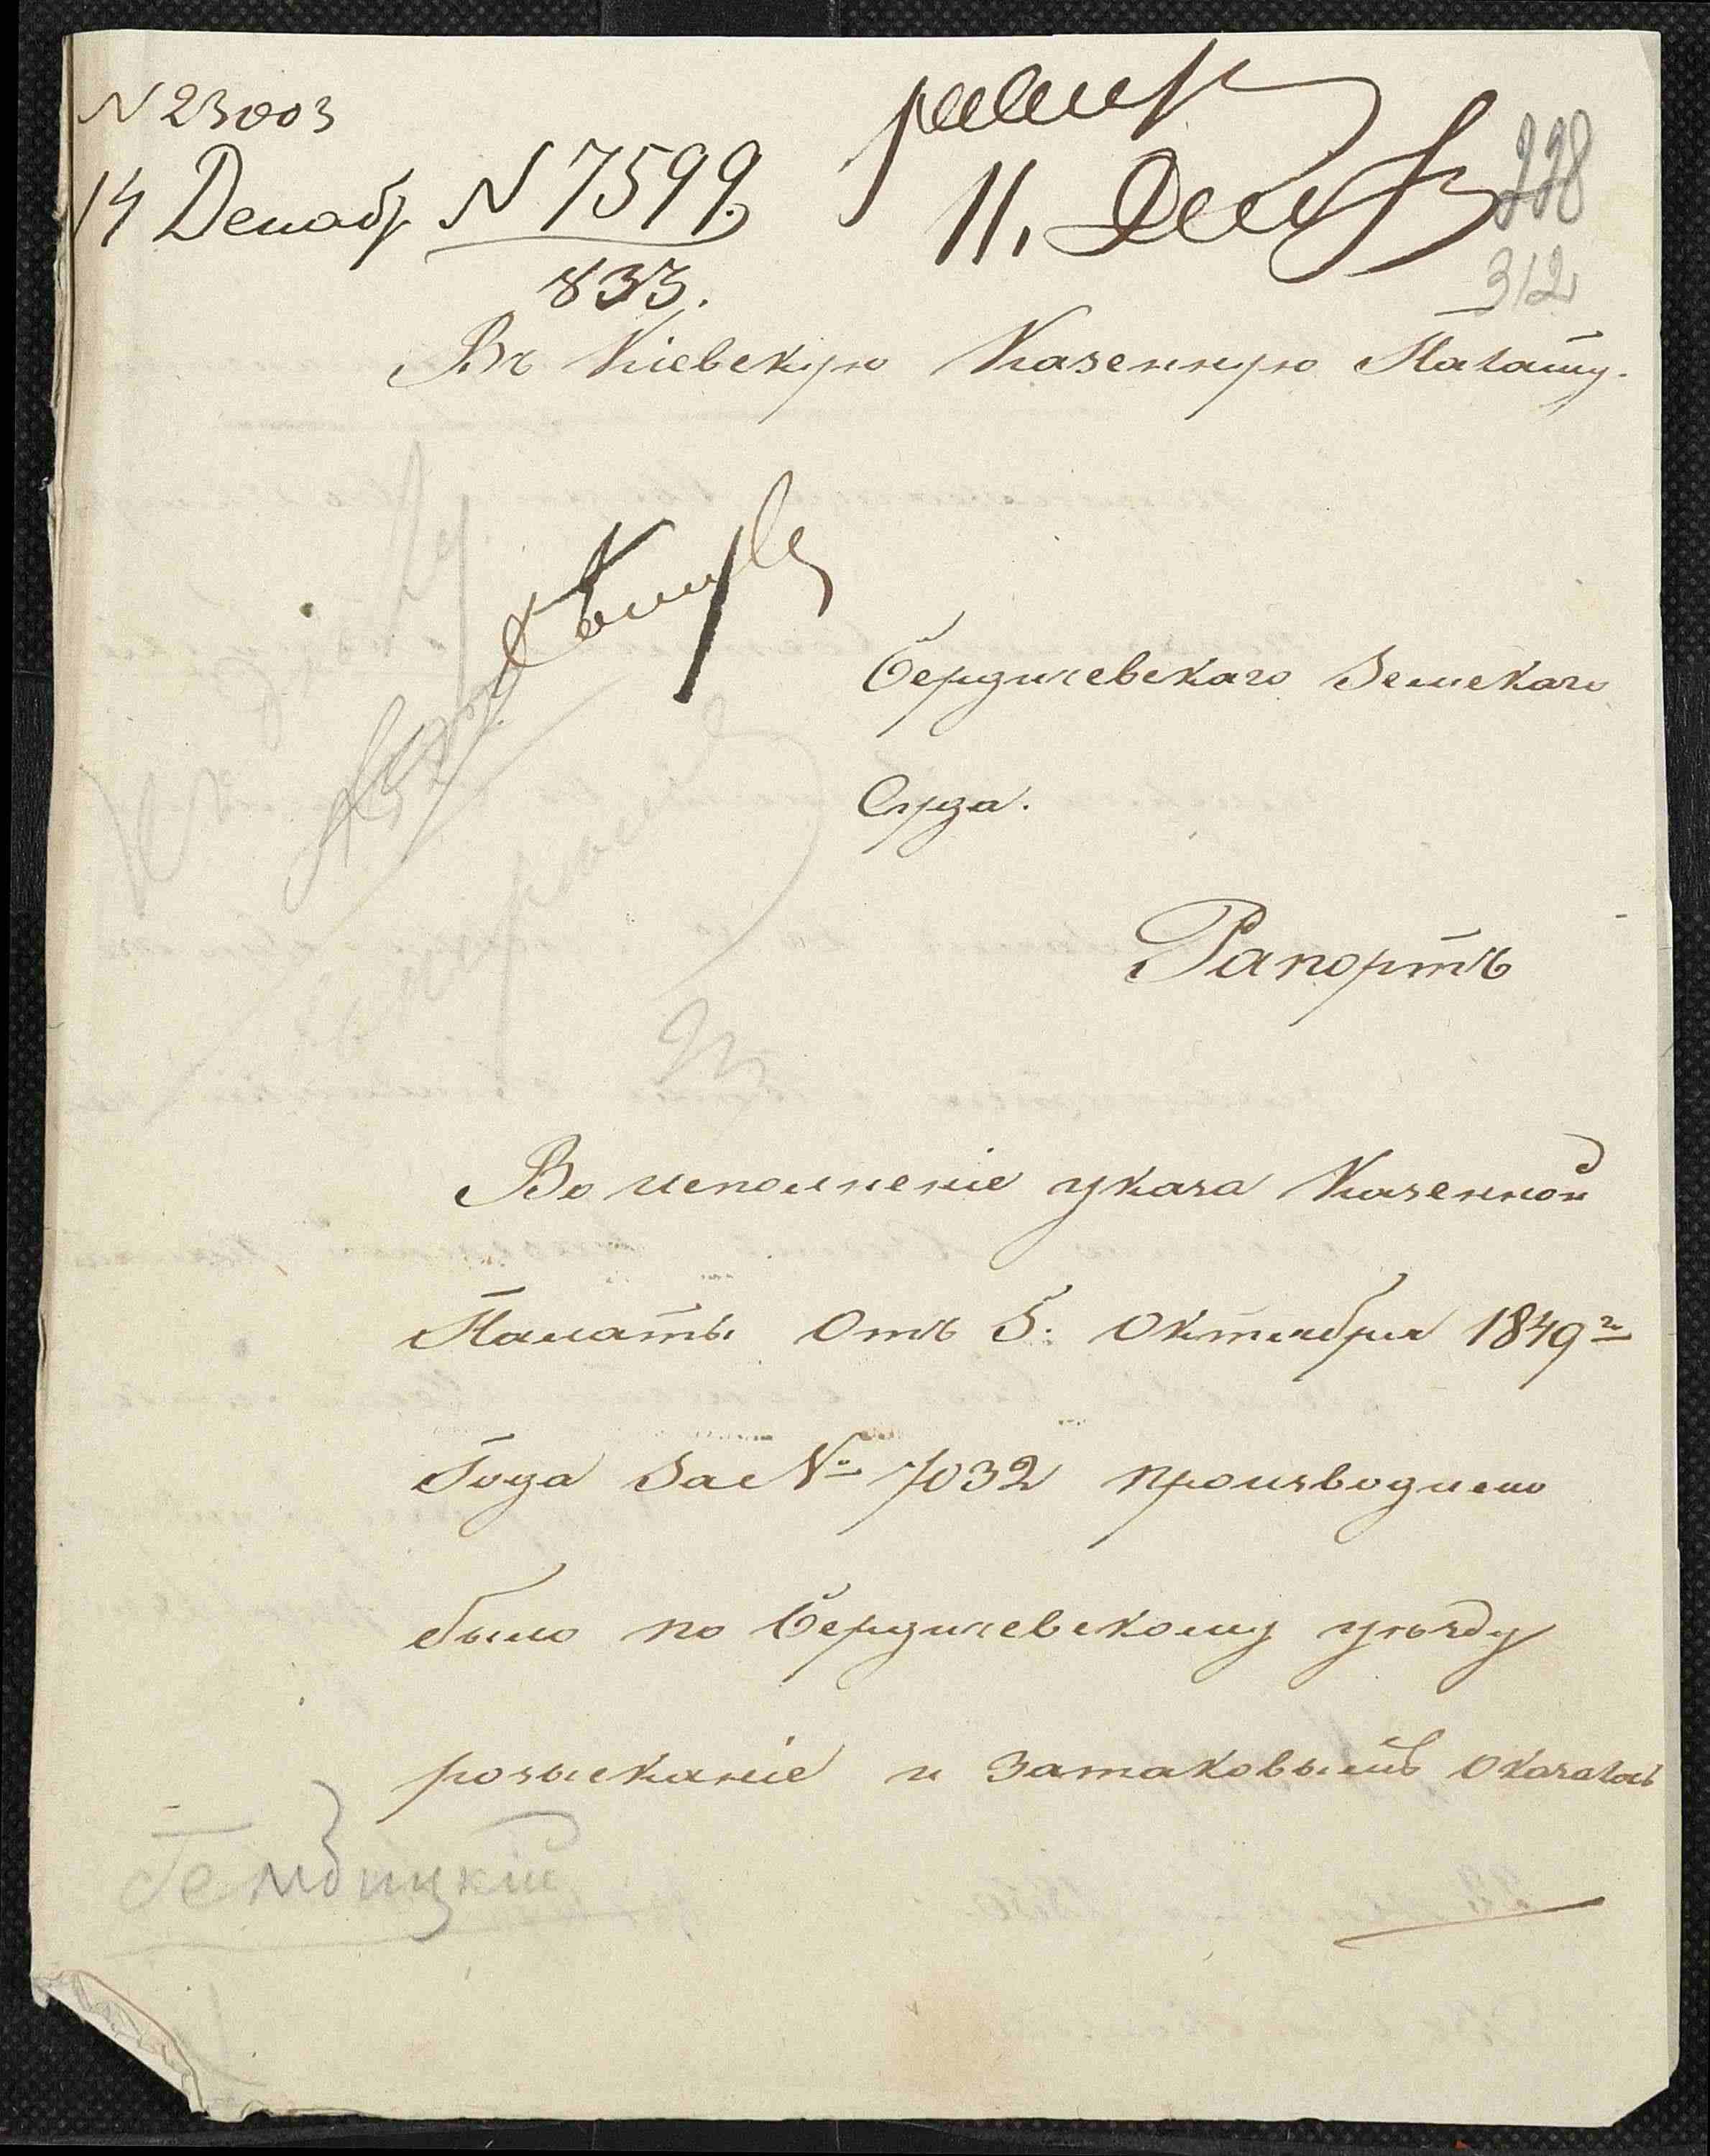 N 23003
14 Декабр N 7599
833.
11. Декабр
228
312
Въ Кіевскую Казенную Палату.
Бердичевскаго Земскаго
Суда.
Рапортъ
Во исполненіе указа Казенной
Палаты отъ 5. Октября 1849 го
Года За № 7032 производимо
было по Бердичевскому уѣзду
розысканіе и затаковымъ оказалось
Гембицкій